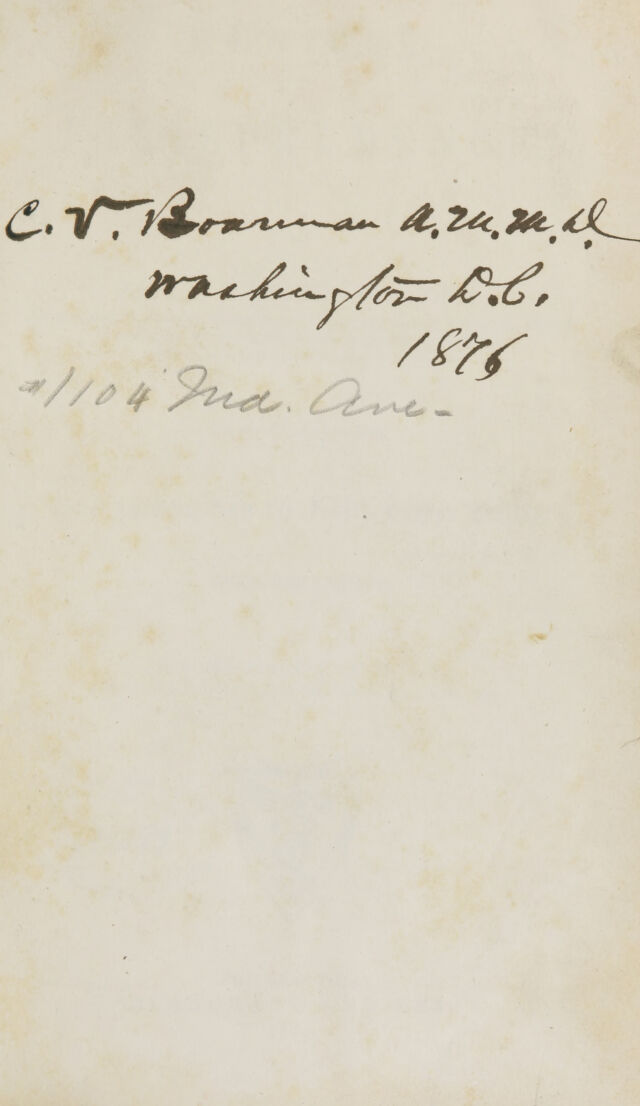 C. V. Boarman A.M. M.D.
Washington D.C.
1876
#1104 Md. Ave-